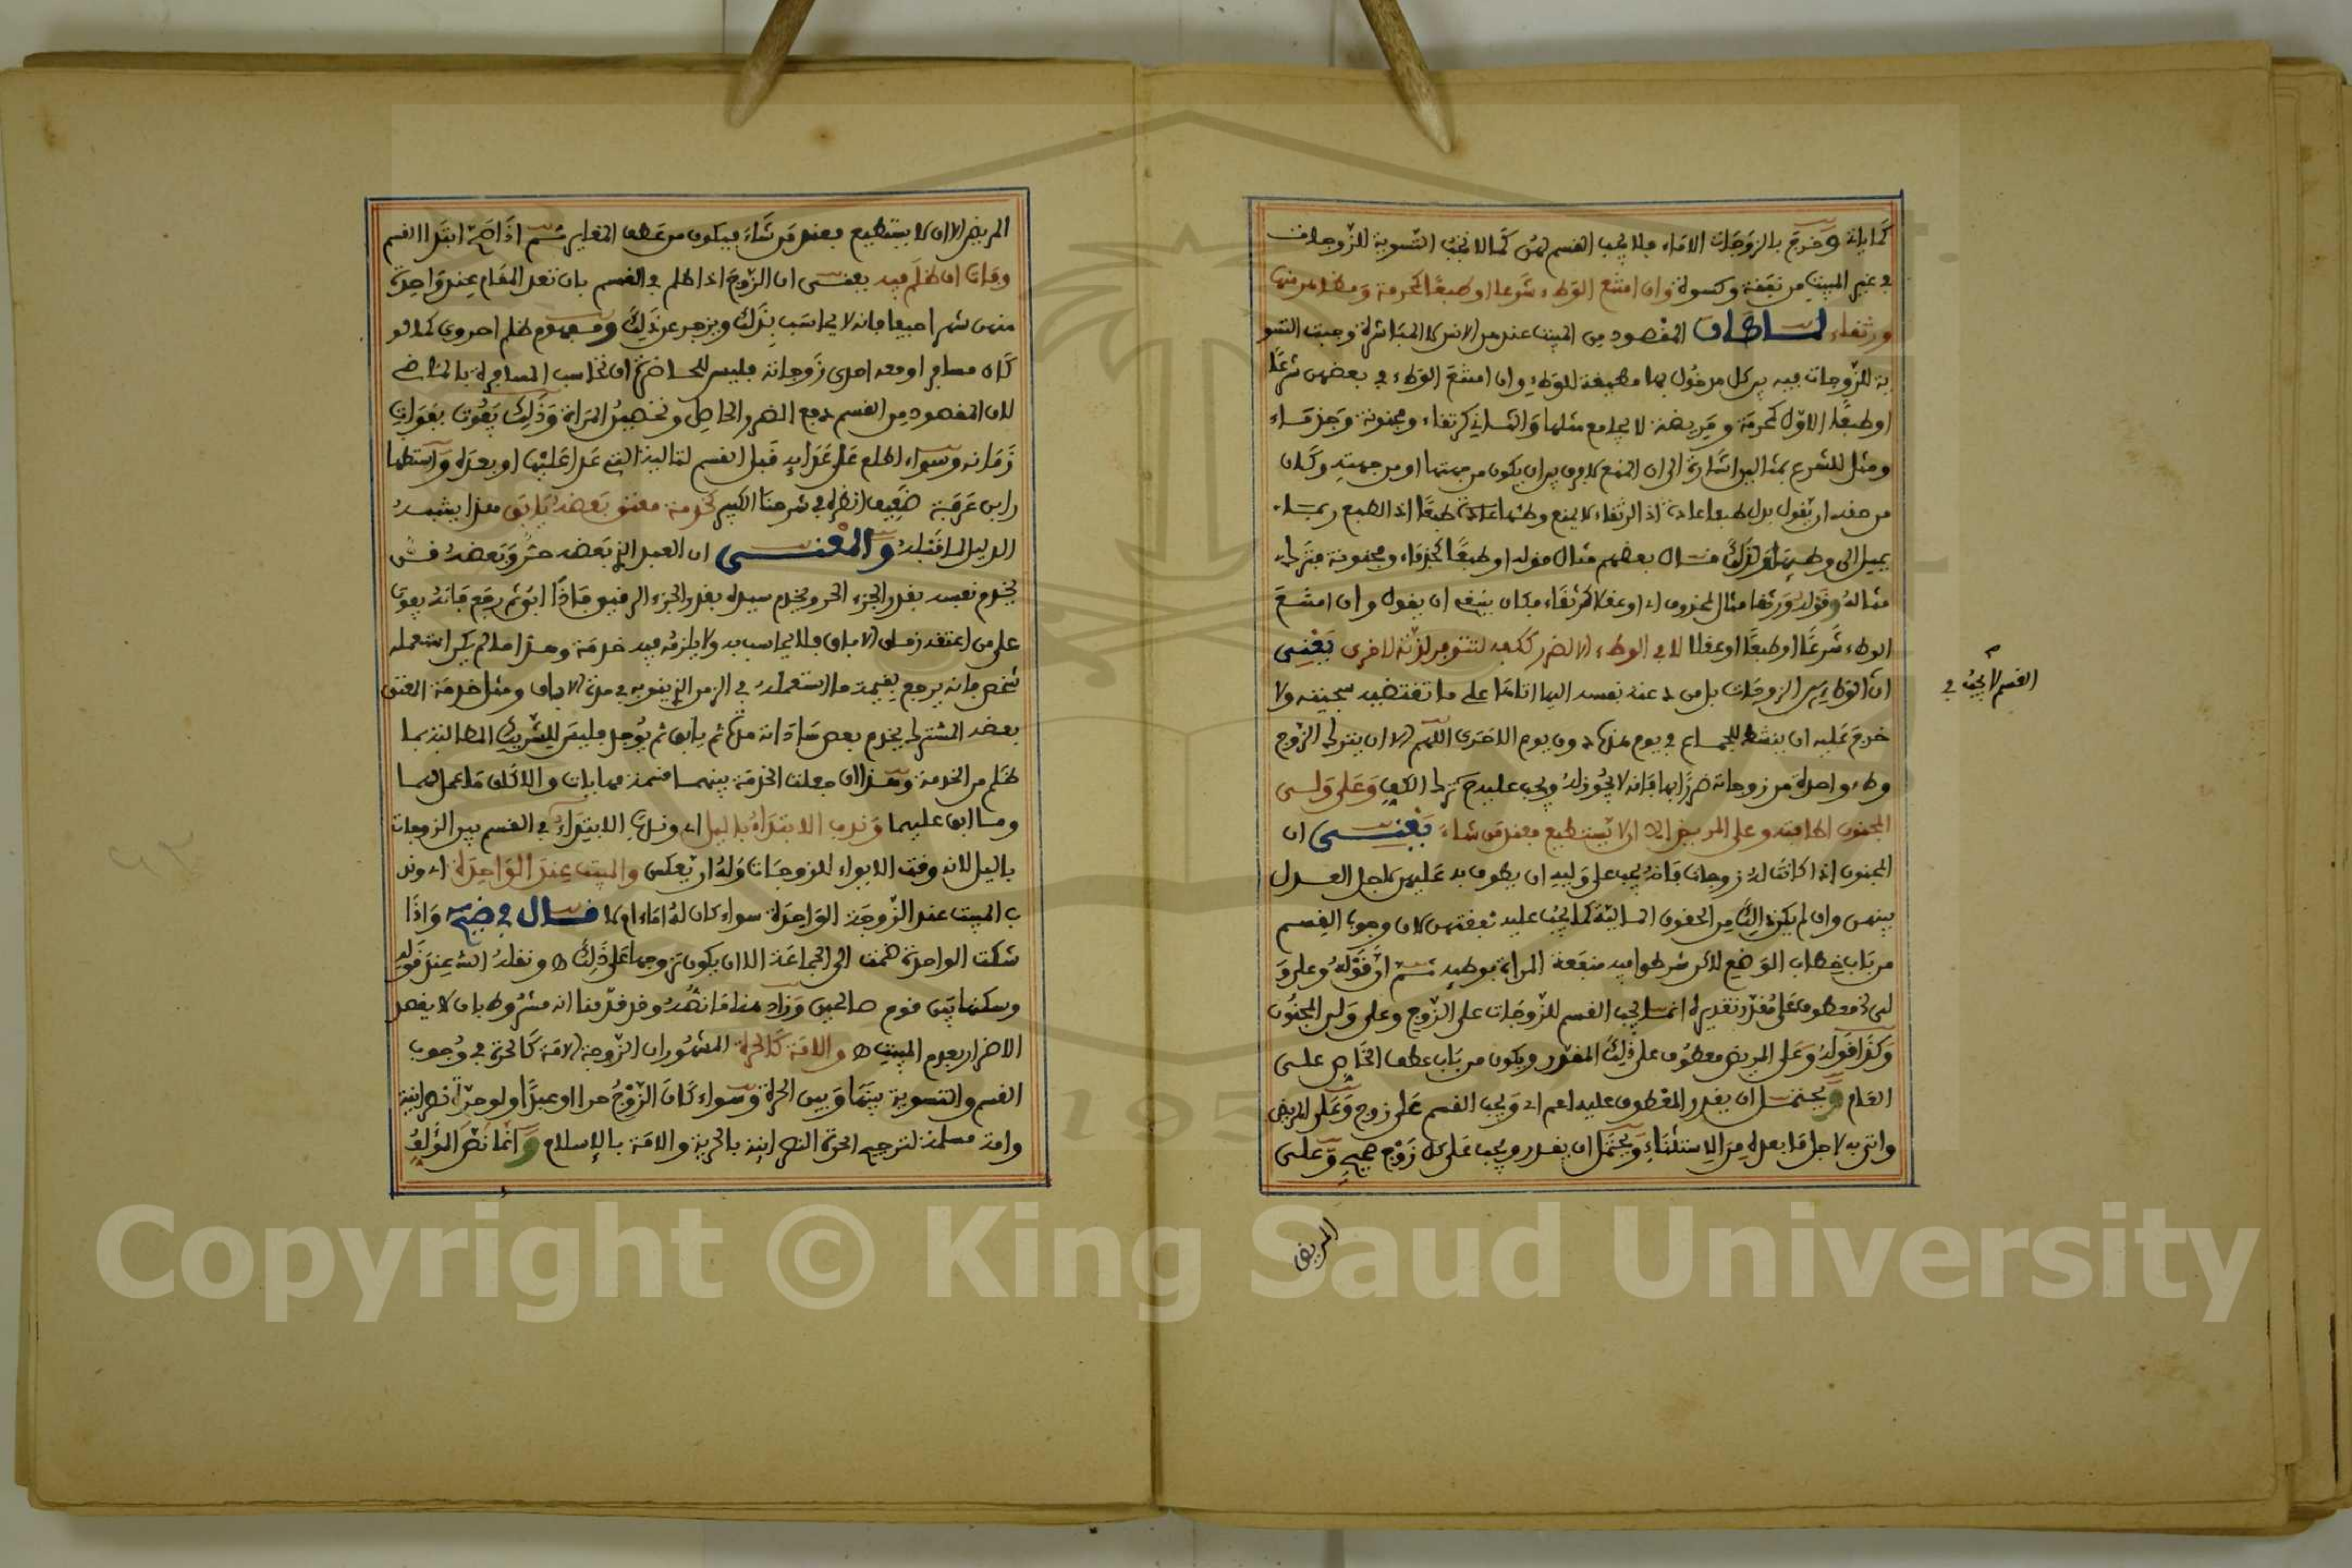 كما ياتى وخرج بالزوجات الاماء فلا يجب القسم لهن كما لا تجب التسوية للزوجات
في غير المبيت من نفقة وكسوة وان امتنع الوطء شرعا او طبعا كمحرمة ومظاهر منها
ورتقاء لما كان المقصود من المبيت عندهن الانس لا المباشرة وجبت التسو
ية للزوجات فيه بين كل مدخول بها مطيقة للوطء وان امتنع الوطء في بعضهن شرعا
او طبعا الاول كمحرمة ومريضة لا يجامع مثلها والثاني كرتقاء ومجنونة وجذماء
ومثل للشرع بمثالين اشارة الى ان المنع لا فرق بين ان يكون من جهتها او من جهته وكان
من حقه ان يقول بدل طبعا عادة اذ الرتقاء لا يمنع وطئها عادة طبعا اذ الطبع ربما
يميل الى وطيها ولذلك قال بعضهم مثال قوله او طبعا كجذماء ومجنونة فترك
مثاله وقوله ورتقا مثال لمحذوف اي او عقلا كرتقاء فكان ينبغي ان يقول وان امتنع
الوطء شرعا او طبعا او عقلا لا في الوطء الا لضرر ككفه لتتوفر لذته لاخرى يعني
ان الوطء بين الزوجات باق عند نفسه اليها اتاها على ما تقتضيه سجيته ولا
حرج عليه ان ينشط للجماع في يوم هذه دون يوم الاخرى اللهم الا ان يترك الزوج
وطء واحدة من زوجاته ضررا بها فانه لا يجوز له ويجب عليه ترك الكف وعلى ولي
المجنون اطافته وعلى المريض الا ان لا يستطيع فعند من شاء يعني ان
المجنون اذا كانت له زوجات فانه يجب على وليه ان يطوف به عليهن لاجل العدل
بينهن وان لم يكن ذلك من الحقوق المالية كما يجب عليه نفقتهن لان وجوب القسم
من باب خطاب الوضع لاكن شرطوا فيه منفعة المراة بوطيه ثم ان قوله وعلى و
لي معطوف على مقدر تقديره انما يجب القسم للزوجات على الزوج وعلى ولي المجنون
وكذا قوله وعلى المريض معطوف على ذلك المقدر ويكون من باب عطف الخاص على
العام ويحتمل ان يقدر المعطوف عليه اعم اي ويجب القسم على زوج وعلى المريض
واتى به لاجل ما بعده من الاستثناء ويحتمل ان يقدر ويجب على كل زوج صحيح وعلى
المريض
القسم لا يجب في
المريض الا ان لا يستطيع فعند من شاء فيكون من عطف المغاير ثم اذا صح ابتدا القسم
وفات ان ظلم فيه يعني ان الزوج اذا ظلم في القسم بان تعد المقام عند واحدة
منهن شهرا حيفا فانه لا يحاسب بذلك ويزجر عن ذلك ومفهوم ظلم احروى كما لو
كان مسافرا ومعه احدى زوجاته فليس للحاضرة ان تحاسب المسافرة بالماضي
لان المقصود من القسم دفع الضرر الحاصل وتحصين المراة وذلك يفوت بفوات
زمانه وسواء اطلع على عدايه قبل القسم لتاليه التي عدا عليها او بعده واستظها
ر ابن عرفة ضعيف انظره في شرحنا الكبير كخدمة معتق بعضه يابق هذا يشبه
الدليل لما قبله والمعنى ان العبد الذي بعضه حر وبعضه قن
يخدم نفسه بقدر الجزء الحر ويخدم سيده بقدر الجزء الرقيق فاذا ابق ثم رجع فانه يفوت
على من اعتقه زمان الاباق فلا يحاسب به ولا يلزمه فيه خدمة وهذا ما لم يكن استعمله
شخص فانه يرجع بقيمة ما استعمله في الزمن الذي ينوبه في مدة الاباق ومثل خدمة المعتق
بعضه المشترك يخدم بعض ساداته مدة ثم يابق ثم يوجد فليس للشريك المطالبة بما
ظلم من الخدمة وهذا ان جعلت الخدمة بينهما قسمة مهاباة والا كان ما عمل لهما
وما ابق عليهما وندب الابتداء بالليل اي وندب الابتداء في القسم بين الزوجات
بالليل لانه وقت الايواء للزوجات وله ان يعكس والمبيت عند الواحدة اي وند
ب المبيت عند الزوجة الواحدة سواء كان له اماء ام لا قال في ضيح واذا
شكت الوحدة ضمت الى الجماعة الا ان يكون تزوجها على ذلك ه ونقله الش عند قوله
وسكنها بين قوم صالحين وزاد هنا ما نصه وقد قدمنا انه مشروط بان لا يقصد
الاضرار بعدم المبيت ه والامة كالحرة المشهور ان الزوجة الامة كالحرة في وجوب
القسم والتسوية بينها وبين الحرة وسواء كان الزوج حرا او عبدا ولو حرة نصرانية
وامة مسلمة لترجيح الحرة النصرانية بالحرية والامة بالاسلام وانما نص المؤلف
Copyright © King Saud University
195